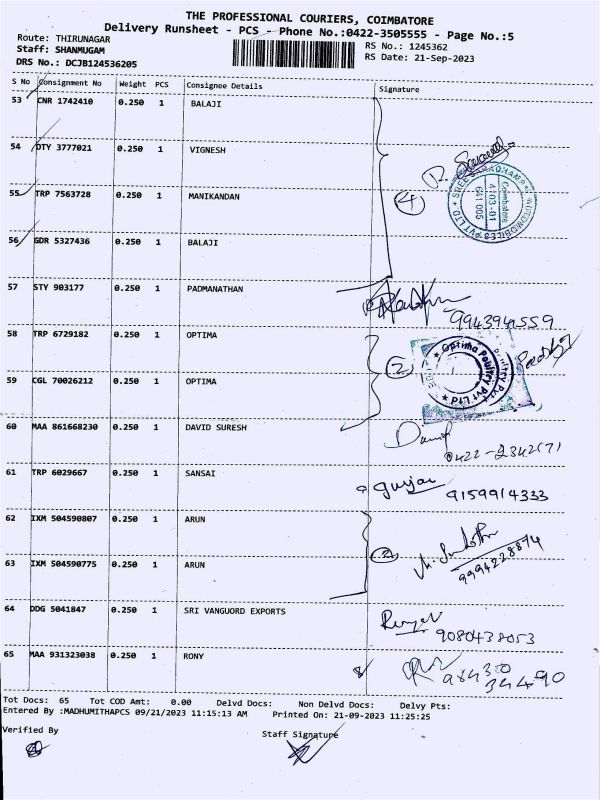 THE PROFESSIONAL COURIERS, COIMBATORE
Delivery Runsheet - PCS - Phone No.:0422-3505555 - Page No.:5
Route: THIRUNAGAR RS No.: 1245362
Staff: SHANMUGAM RS Date: 21-Sep-2023
DRS No.: DCJB124536205
S No Consignment No Weight PCS Consignee Details Signature
53 CNR 1742410 0.250 1 BALAJI
54 DTY 3777021 0.250 1 VIGNESH
55 TRP 7563728 0.250 1 MANIKANDAN
4
Coimbatore
4103-01
641 005
56 GDR 5327436 0.250 1 BALAJI
57 STY 903177 0.250 1 PADMANATHAN
9943941559
58 TRP 6729182 0.250 1 OPTIMA
2
Optima Poultry Pvt Ltd
59 CGL 70026212 0.250 1 OPTIMA
60 MAA 861668230 0.250 1 DAVID SURESH
0422-2342171
61 TRP 6029667 0.250 1 SANSAI
9159914333
62 IXM 504590807 0.250 1 ARUN
2
9994228874
63 IXM 504590775 0.250 1 ARUN
64 DDG 5041847 0.250 1 SRI VANGUORD EXPORTS
9080438053
65 MAA 931323038 0.250 1 RONY
984350
34490
Tot Docs: 65 Tot COD Amt: 0.00 Delvd Docs: Non Delvd Docs: Delvy Pts:
Entered By :MADHUMITHAPCS 09/21/2023 11:15:13 AM Printed On: 21-09-2023 11:25:25
Verified By Staff Signature